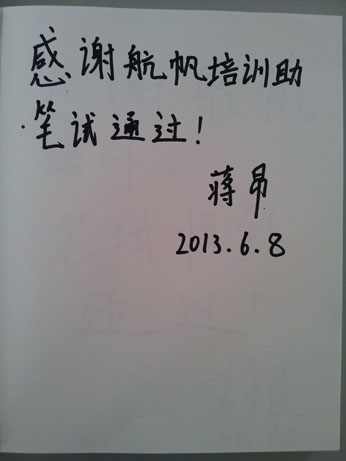 感谢航帆培训助
笔试通过！
蒋昂
2013.6.8